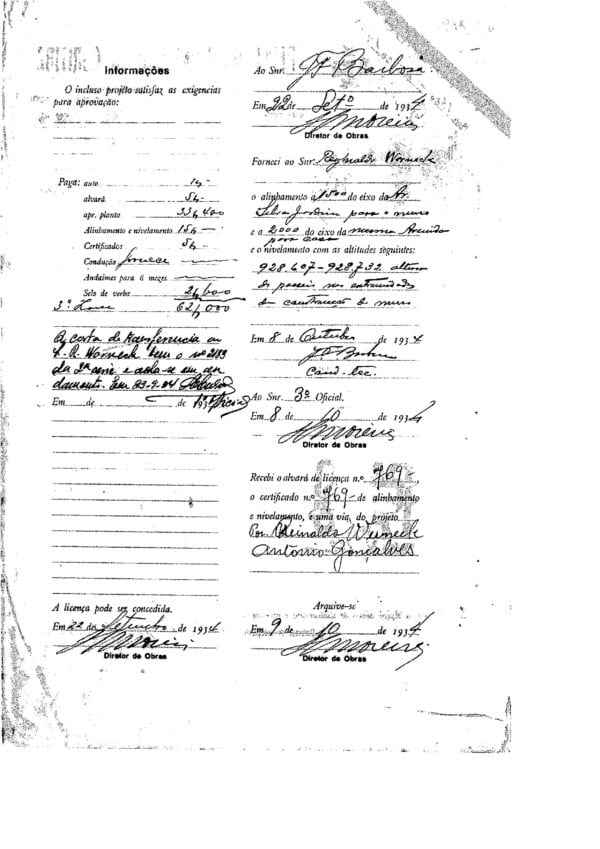 Informações
O incluso projéto satisfaz as exigencias
para aprovação:
Paga: auto
alvará
apr. planta 33$400
Alinhamento e nivelamento 15$
Certificados 5$
Condução
Andaimes para 6 mezes
Selo de verba 2$600
62$000
A carta de transferencia
R. Werneck tem o nº
da 2ª serie e acha-se em an
damento. Em
Em de de 193
A licença pode ser concedida.
Em 22 de Setembro de 1934
Moreira
Diretor de Obras
Ao Snr. Barbosa
Em 22 de Setº de 1934
Moreira
Diretor de Obras
Forneci ao Snr. Reginaldo Werneck
o alinhamento a do eixo da Av.
Silva Jardim para o muro
e a do eixo da mesma Avenida
para casa
e o nivelamento com as altitudes seguintes:
928.607-928.732 altura
do passeio nas extremidades
da construcção do muro
Em 8 de Outubro de 1934
Ao Snr. 3º Oficial.
Em 8 de 10 de 1934
Moreira
Diretor de Obras
Recebi o alvará de licença n.º 769
o certificado n.º 769 de alinhamento
e nivelamento, e uma via do projéto
Por Reinaldo Werneck
Antonio Gonçalves
Arquive-se
Em 9 de 10 de 1934
Moreira
Diretor de Obras